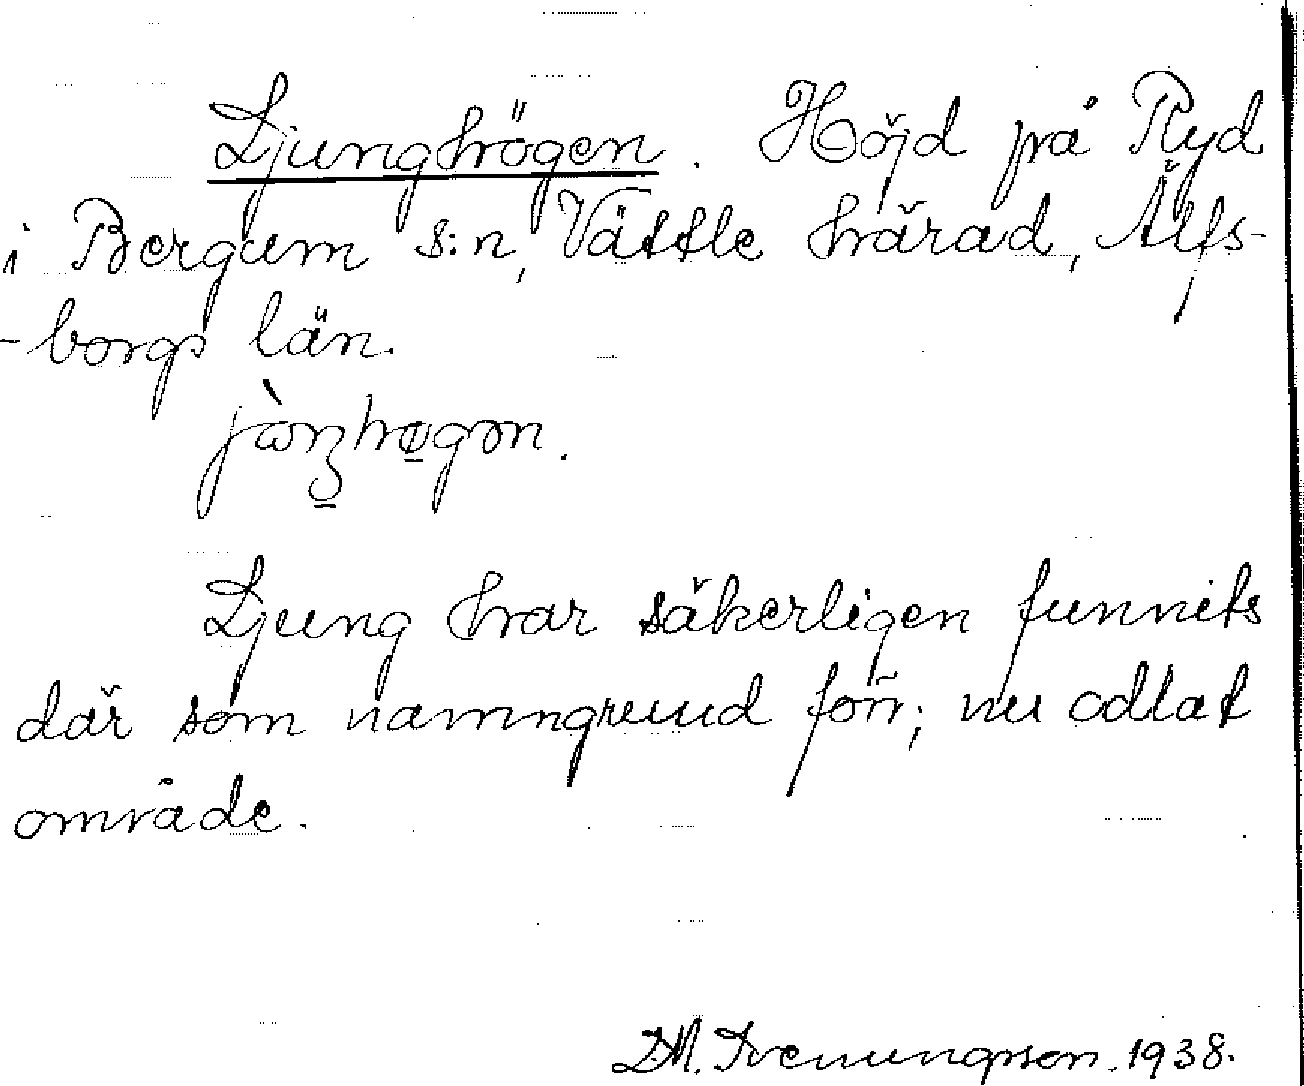 Ljunghögen. Höjd på Ryd
i Bergum s:n, Vättle härad, Älfs-
-borgs län.
Ljung har säkerligen funnits
där som namngrund förr; nu odlat
område.
D.M. Svenungsson. 1938.